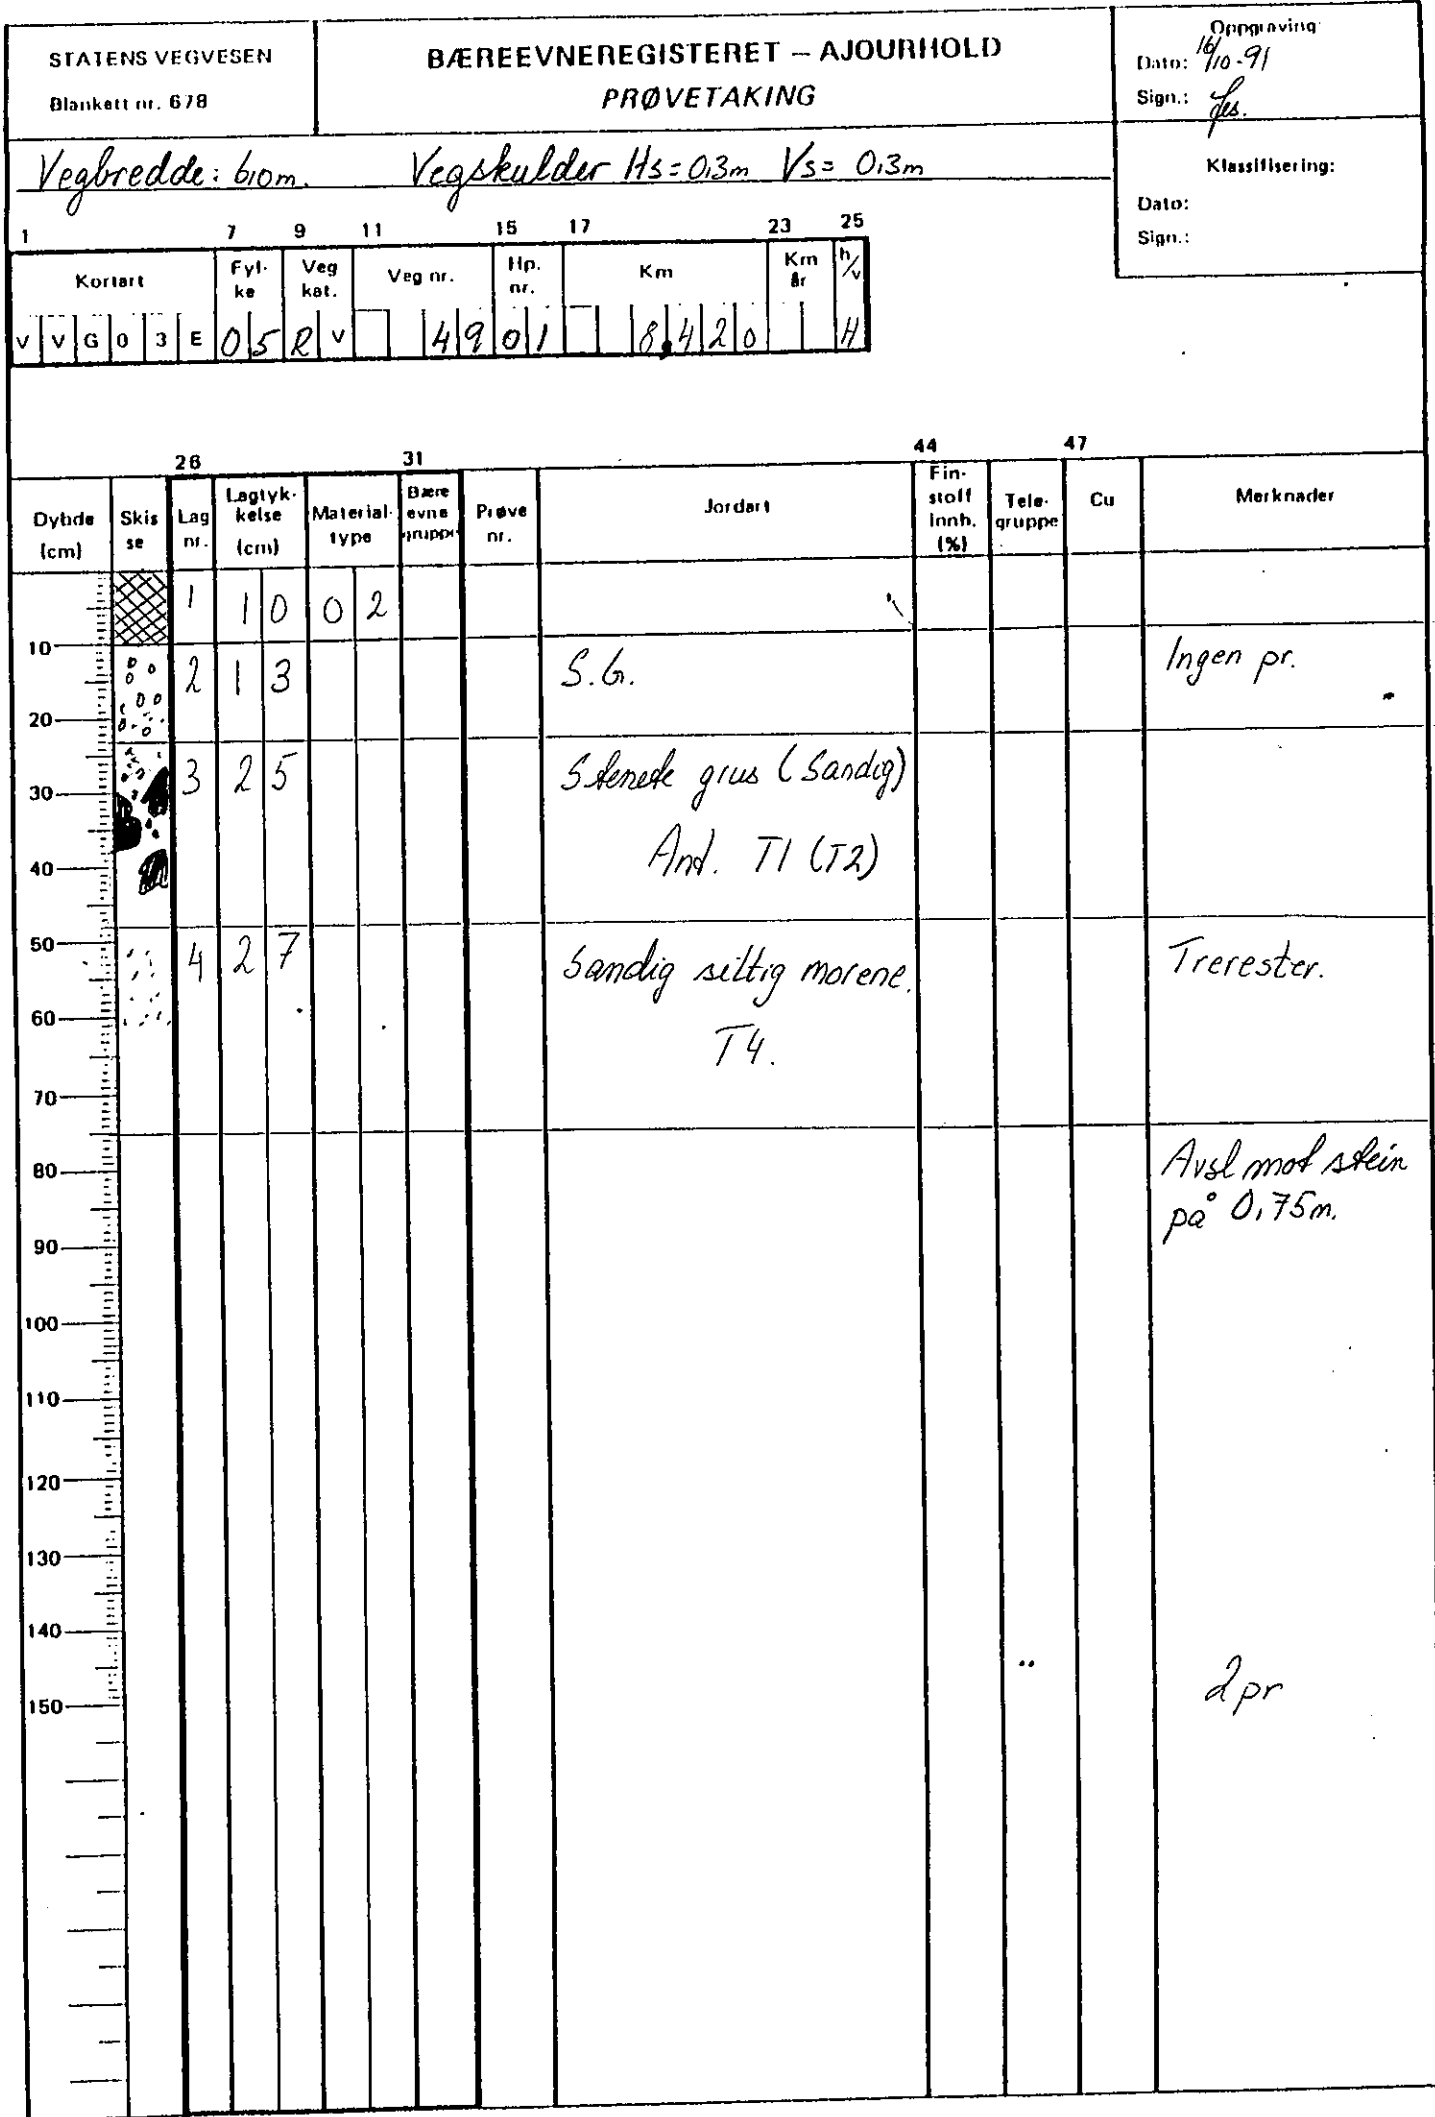 STATENS VEGVESEN
Blankett nr. 678
BÆREEVNEREGISTERET – AJOURHOLD
PRØVETAKING
Oppgraving
Dato: 16/10-91
Sign.:
Klassifisering:
Dato:
Sign.:
Vegbredde: 6,0m. Vegskulder Hs= 0,3m Vs= 0,3m
1 7 9 11 15 17 23 25
Kortart Fyl-ke Veg kat. Veg nr. Hp. nr. Km Km år h/v
V V G 0 3 E 0 5 R V 4 9 0 1 8,4 2 0 H
26 31 44 47
Dybde (cm) Skis se Lag nr. Lagtyk-kelse (cm) Material-type Bære evne gruppe Prøve nr. Jordart Fin-stoff Innh. (%) Tele-gruppe Cu Merknader
1 1 0 0 2
10
2 1 3 S.G. Ingen pr.
20
3 2 5 Stenete grus (Sandig)
30
And. T1 (T2)
40
50
4 2 7 Sandig siltig morene. Trerester.
60
T4.
70
80
Avsl mot stein
på 0,75m.
90
100
110
120
130
140
150
2 pr